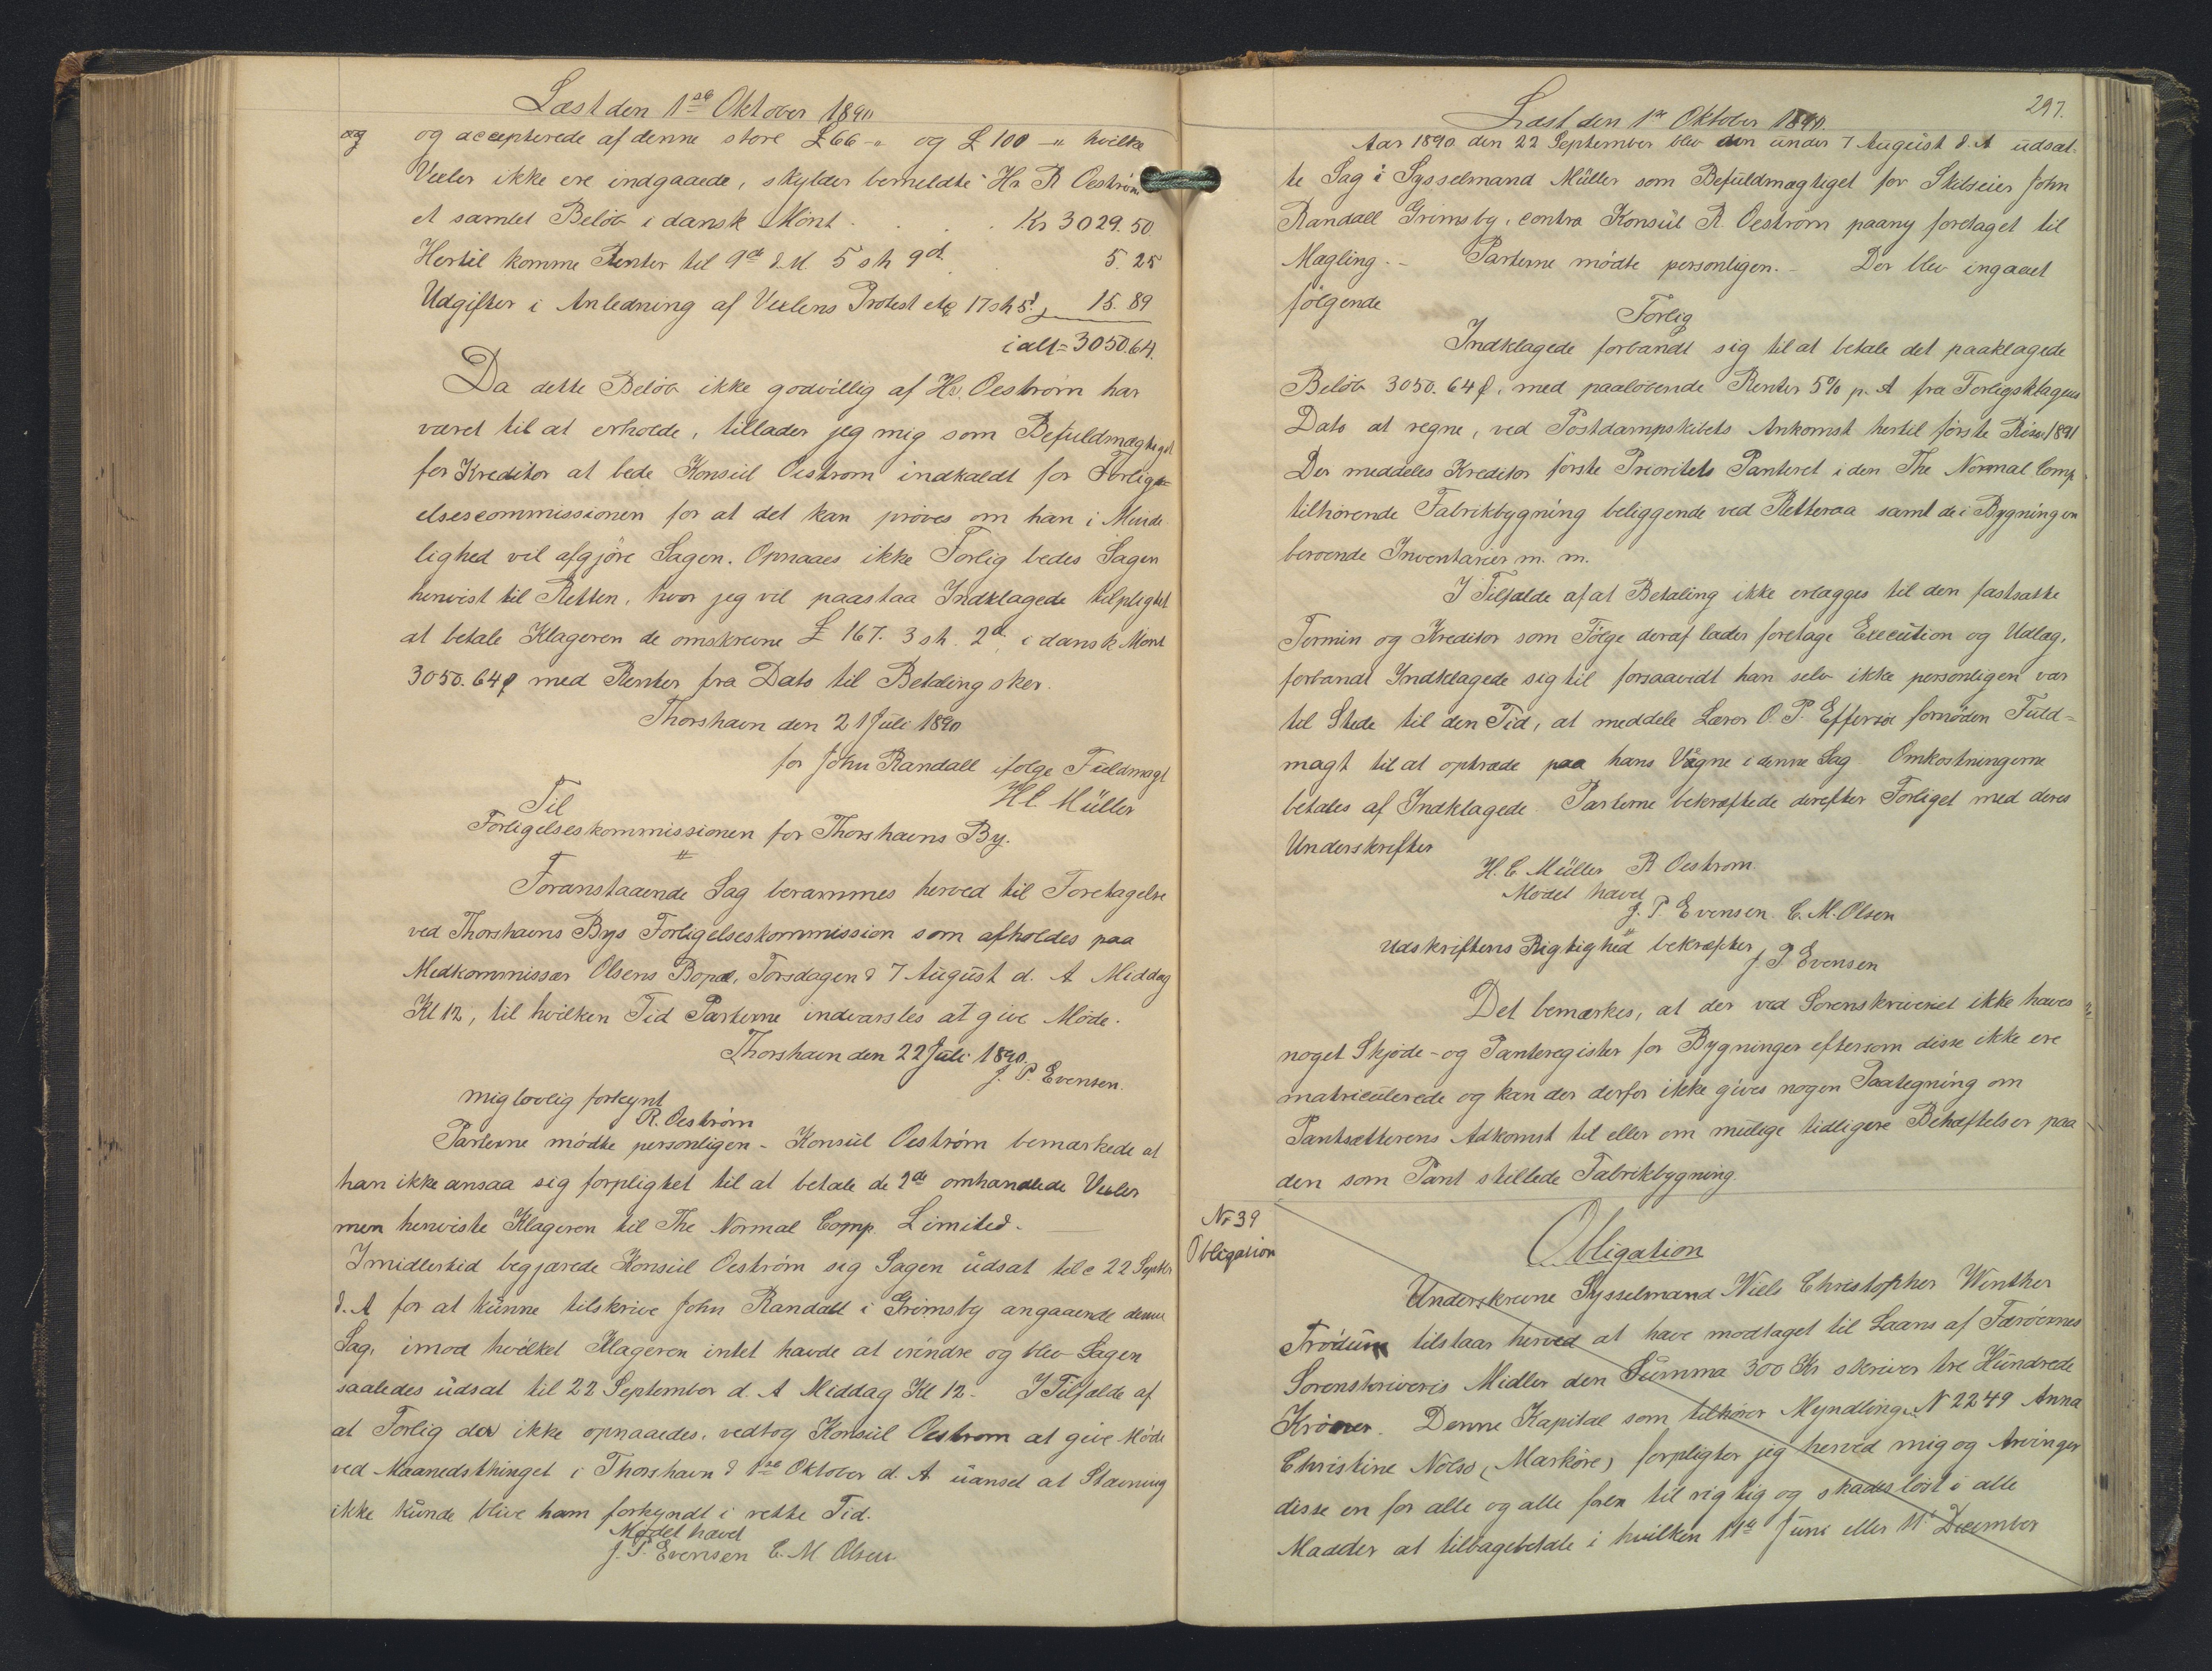 Læst den 1ste Oktober 1890
og
og accepterede af denne store £ 66 -" og £ 100 -" hvilke
Vexler ikke ere indgaaede, skylder bemeldte Hr R Oestrøm
et samlet Beløb i dansk Mønt . . . . Kr 3029.50
Hertil komme Renter til 9de d.M. 5 sh 9d . . 5.25
Udgifter i Anledning af Vexlens Protest etc 17 sh 5d 15.89
ialt = 3050.64.
Da dette Beløb ikke godvillig af Hr. Oestrøm har
været til at erholde, tillader jeg mig som Befuldmægtiget
for Kreditor at bede Konsul Oestrøm indkaldt for Forlig=
elsescommissionen for at det kan prøves om han i Minde
lighed vil afgjøre Sagen. Opnaaes ikke Forlig bedes Sagen
henvist til Retten, hvor jeg vil paastaa Indklagede tilpligtet
at betale Klageren de omskrevne £ 167. 3 sh. 2d, i dansk Mønt
3050.64 ø med Renter fra Dato til Betaling sker.
Thorshavn den 21 Juli 1890
for John Randall ifølge Fuldmagt
H C Müller
Til
Forligelseskommissionen for Thorshavns By.
"
Foranstaaende Sag berammes herved til Foretagelse
ved Thorshavns Bys Forligelseskommission som afholdes paa
Medkommissær Olsens Bopæl, Torsdagen d 7 August d. A Middag
Kl 12, til hvilken Tid Parterne indvarsles at give Møde.
Thorshavn den 22 Juli 1890.
J. P. Evensen.
mig lovlig forkynt
R. Oestrøm
Parterne mødte personligen - Konsul Oestrøm bemærkede at
han ikke ansaa sig forpligtet til at betale de 2de omhandlede Vexler
men henviste Klageren til The Normal Comp. Limited.
Imidlertid begjærede Konsul Oestrøm sig Sagen udsat til 22 Septbr
d. A for at kunne tilskrive John Randall i Grimsby angaaende denne
Sag, imod hvilket Klageren intet havde at erindre og blev Sagen
saaledes udsat til 22 September d. A Middag Kl 12 - I Tilfælde af
at Forlig der ikke opnaaedes, vedtog Konsul Oestrom at give Møde
ved Maanedsthinget i Thorshavn d 1ste Oktober d. A uanset at Stævning
ikke kunde blive ham forkyndt i rette Tid.
Mødet hævet
J. P. Evensen C. M Olsen
297.
Læst den 1ste Oktober 1890.
Aar 1890 den 22 September blev den under 7 August d. A udsat
te Sag i Sysselmand Müller som Befuldmægtiget for Skibseier John
Randall Grimsby, contra Konsul R. Oestrøm paany foretaget til
Mægling. - Parterne mødte personligen. - Der blev ingaaet
følgende
Forlig
Indklagede forbandt sig til at betale det paaklagede
Beløb 3050.64 ø, med paaløbende Renter 5% p. A fra Forligsklagens
Dato at regne, ved Postdampskibets Ankomst hertil første Reise 1891
Der meddeles Kreditor første Prioritets Panteret i den The Normal Comp.
tilhørende Fabrikbygning beliggende ved Retteraa samt de i Bygningen
beroende Inventarier m. m.
I Tilfælde af at Betaling ikke erlægges til den fastsatte
Termin og Kreditor som Følge deraf lader foretage Execution og Udlæg,
forbandt Indklagede sig til forsaavidt han selv ikke personligen var
til Stede til den Tid, at meddele Lærer O. P. Effersøe fornøden Fuld=
magt til at optræde paa hans Vegne i denne Sag. Omkostningerne
betales af Indklagede. Parterne bekræftede derefter Forliget med deres
Underskrifter
H. C Müller R Oestrom.
Mødet hævet
J. P. Evensen C. M. Olsen
"
Udskriftens Rigtighed bekræfter J. P Evensen
Det bemærkes, at der ved Sorenskriveriet ikke haves
noget Skjøde - og Panteregister for Bygninger eftersom disse ikke ere
matriculerede og kan der derfor ikke gives nogen Paategning om
Pantsætterens Adkomst til eller om mulige tidligere Behæftelser paa
den som Pant stillede Fabrikbygning.
Nr 39
Obligation
Obligation
Underskrevne Sysselmand Niels Christopher Winther
Frodum tilstaar herved at have modtaget til Laans af Færøernes
Sorenskriveris Midler den Summa 300 Kr skriver tre Hundrede
Kroner. Denne Kapital som tilhører Myndling N 2249 Anna
Christine Nolsø (Mørkøre) forpligter jeg herved mig og Arvinger
disse en for alle og alle for en til rigtig og skadesløst i alle
Maader at tilbagebetale i hvilken 11te Juni eller 11te December